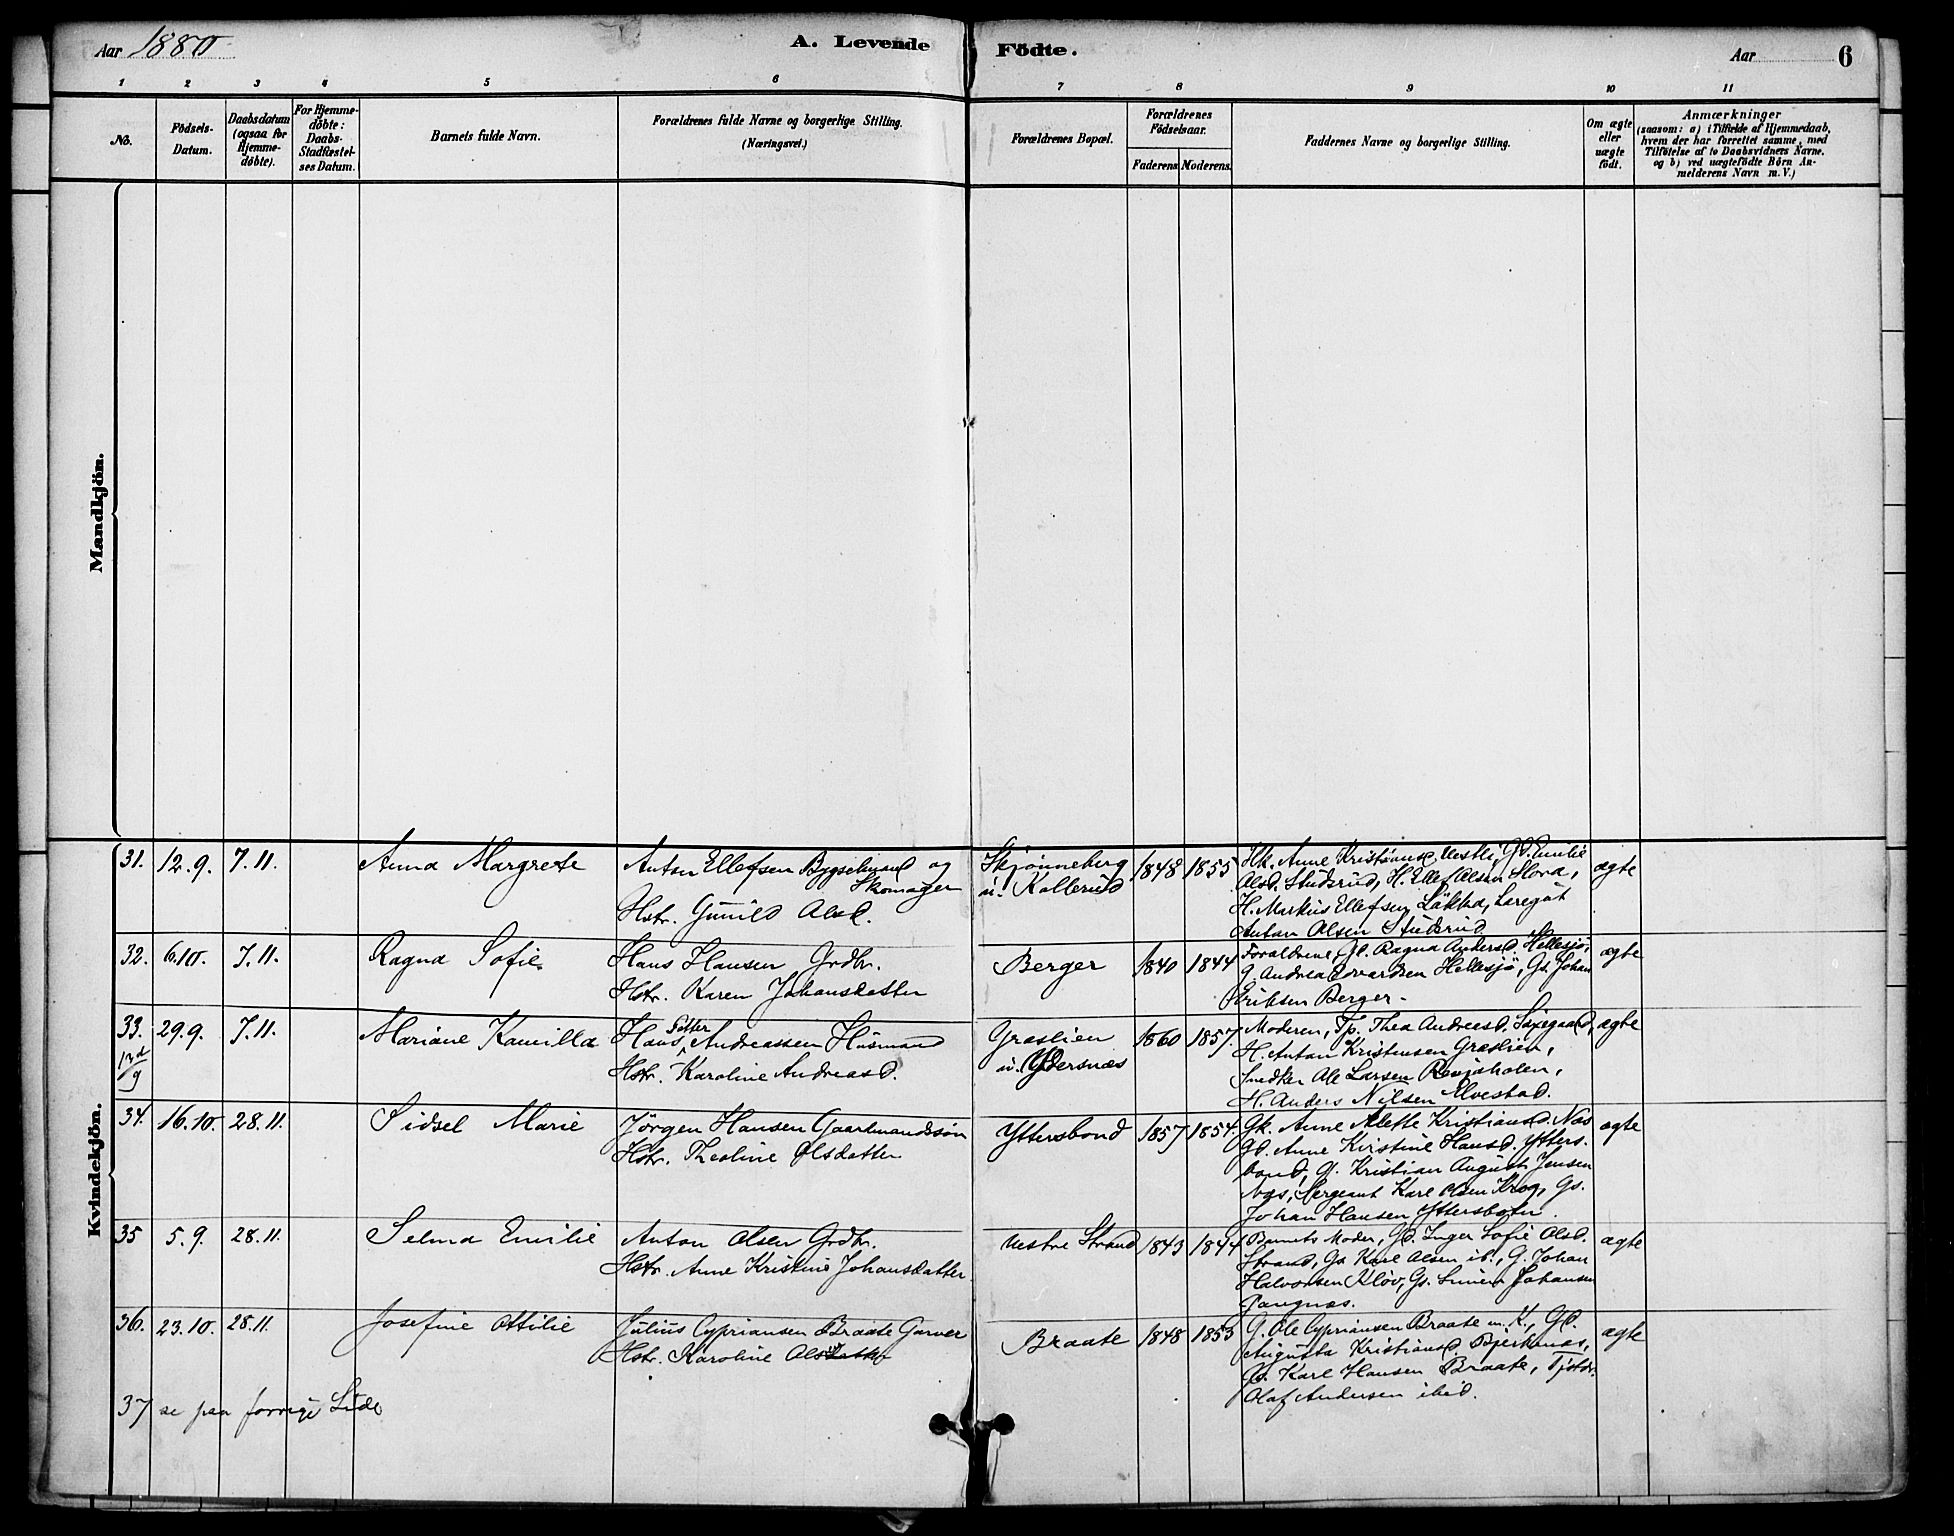 Aar 1880
A. Levende
Födte.
Aar
6
1 2 3 4 5 6 7 8 9 10 11
No.
Födsels-
Datum.
Daabsdatum
(ogsaa for
Hjemme-
döbte).
For Hjemme-
döbte:
Daabs-
Stadfæstel-
ses Datum.
Barnets fulde Navn.
Forældrenes fulde Navne og borgerlige Stilling.
(Næringsvei.)
Forældrenes Bopæl.
Forældrenes
Födselsaar.
Faderens.
Moderens.
Faddernes Navne og borgerlige Stilling.
Om ægte
eller
uægte
födt.
Anmærkninger
(saasom: a) i Tilfælde af Hjemmedaab,
hvem der har forrettet samme, med
Tilföielse af to Daabsvidners Navne,
og b) ved uægtefödte Börn An-
melderens Navn m. V.)
Mandkjön.
Kvindekjön.
31. 12.9. 7.11. Anna Margrete
Anton Ellefsen Bygselmand og
Skomager
Hstr. Gunild Olsd.
Skjønneberg
u. Kollerud
1848 1855
Hk. Anne Kristiansd. Vestli, Gd. Emilie
Olsd. Studsrud, H. Ellef Olsen
H. Markus Ellefsen
Anton Olsen Studsrud
ægte
32. 6.10. 7.11. Ragna Sofie
Hans Hansen Grdbr.
Hstr. Karen Johansdatter
Berger
1840 1844
Forældrene, Gd. Ragna Andersd. Hellesjø,
G. Andrea Edvardsen Hellesjø, Gs. Johan
Eriksen Berger.
ægte
33. 29.9. 7.11. Mariane Kamilla
Hans Petter Andreassen Husmand
Hstr. Karoline Andreasd.
Græslien
u. Ydersnæs
1860 1857.
Moderen, Tp. Thea Andreasd.
H. Anton Kristensen Græslien,
Snedker Ole Larsen
H. Anders Nilsen Elvestad.
ægte
34. 16.10. 28.11. Sidsel Marie
Jørgen Hansen Gaardmandssøn
Hstr. Theoline Olsdatter
Yttersbond
1857 1854.
Gk. Anne Alette Kristiansd. Næs
Gd. Anne Kirstine Hansd. Ytters-
bond, G. Kristian August Jensen
Næs, Sergeant Karl Olsen Krog, Gs.
Johan Hansen
ægte
35 5.9. 28.11. Selma Emilie
Anton Olsen Grdbr.
Hstr. Anne Kristine Johansdatter
Vestre Strand
1843 1844
Barnets Moder, Gd. Inger Sofie Olsd.
Strand, Gs. Karl Olsen ib., G. Johan
Halvorsen Kløv, Gs. Johansen
Gangnæs.
ægte
36. 23.10. 28.11. Josefine Ottilie
Julius Cypriansen Braate Garver
Hstr. Karoline
Braate
1848 1853
G. Ole Cypriansen Braate m. K., Gd.
Augusta Kristiansd. Bjerkenæs,
Gs. Karl Hansen Braate,
Olaf Andersen ibid.
ægte
37 se paa forrige Side